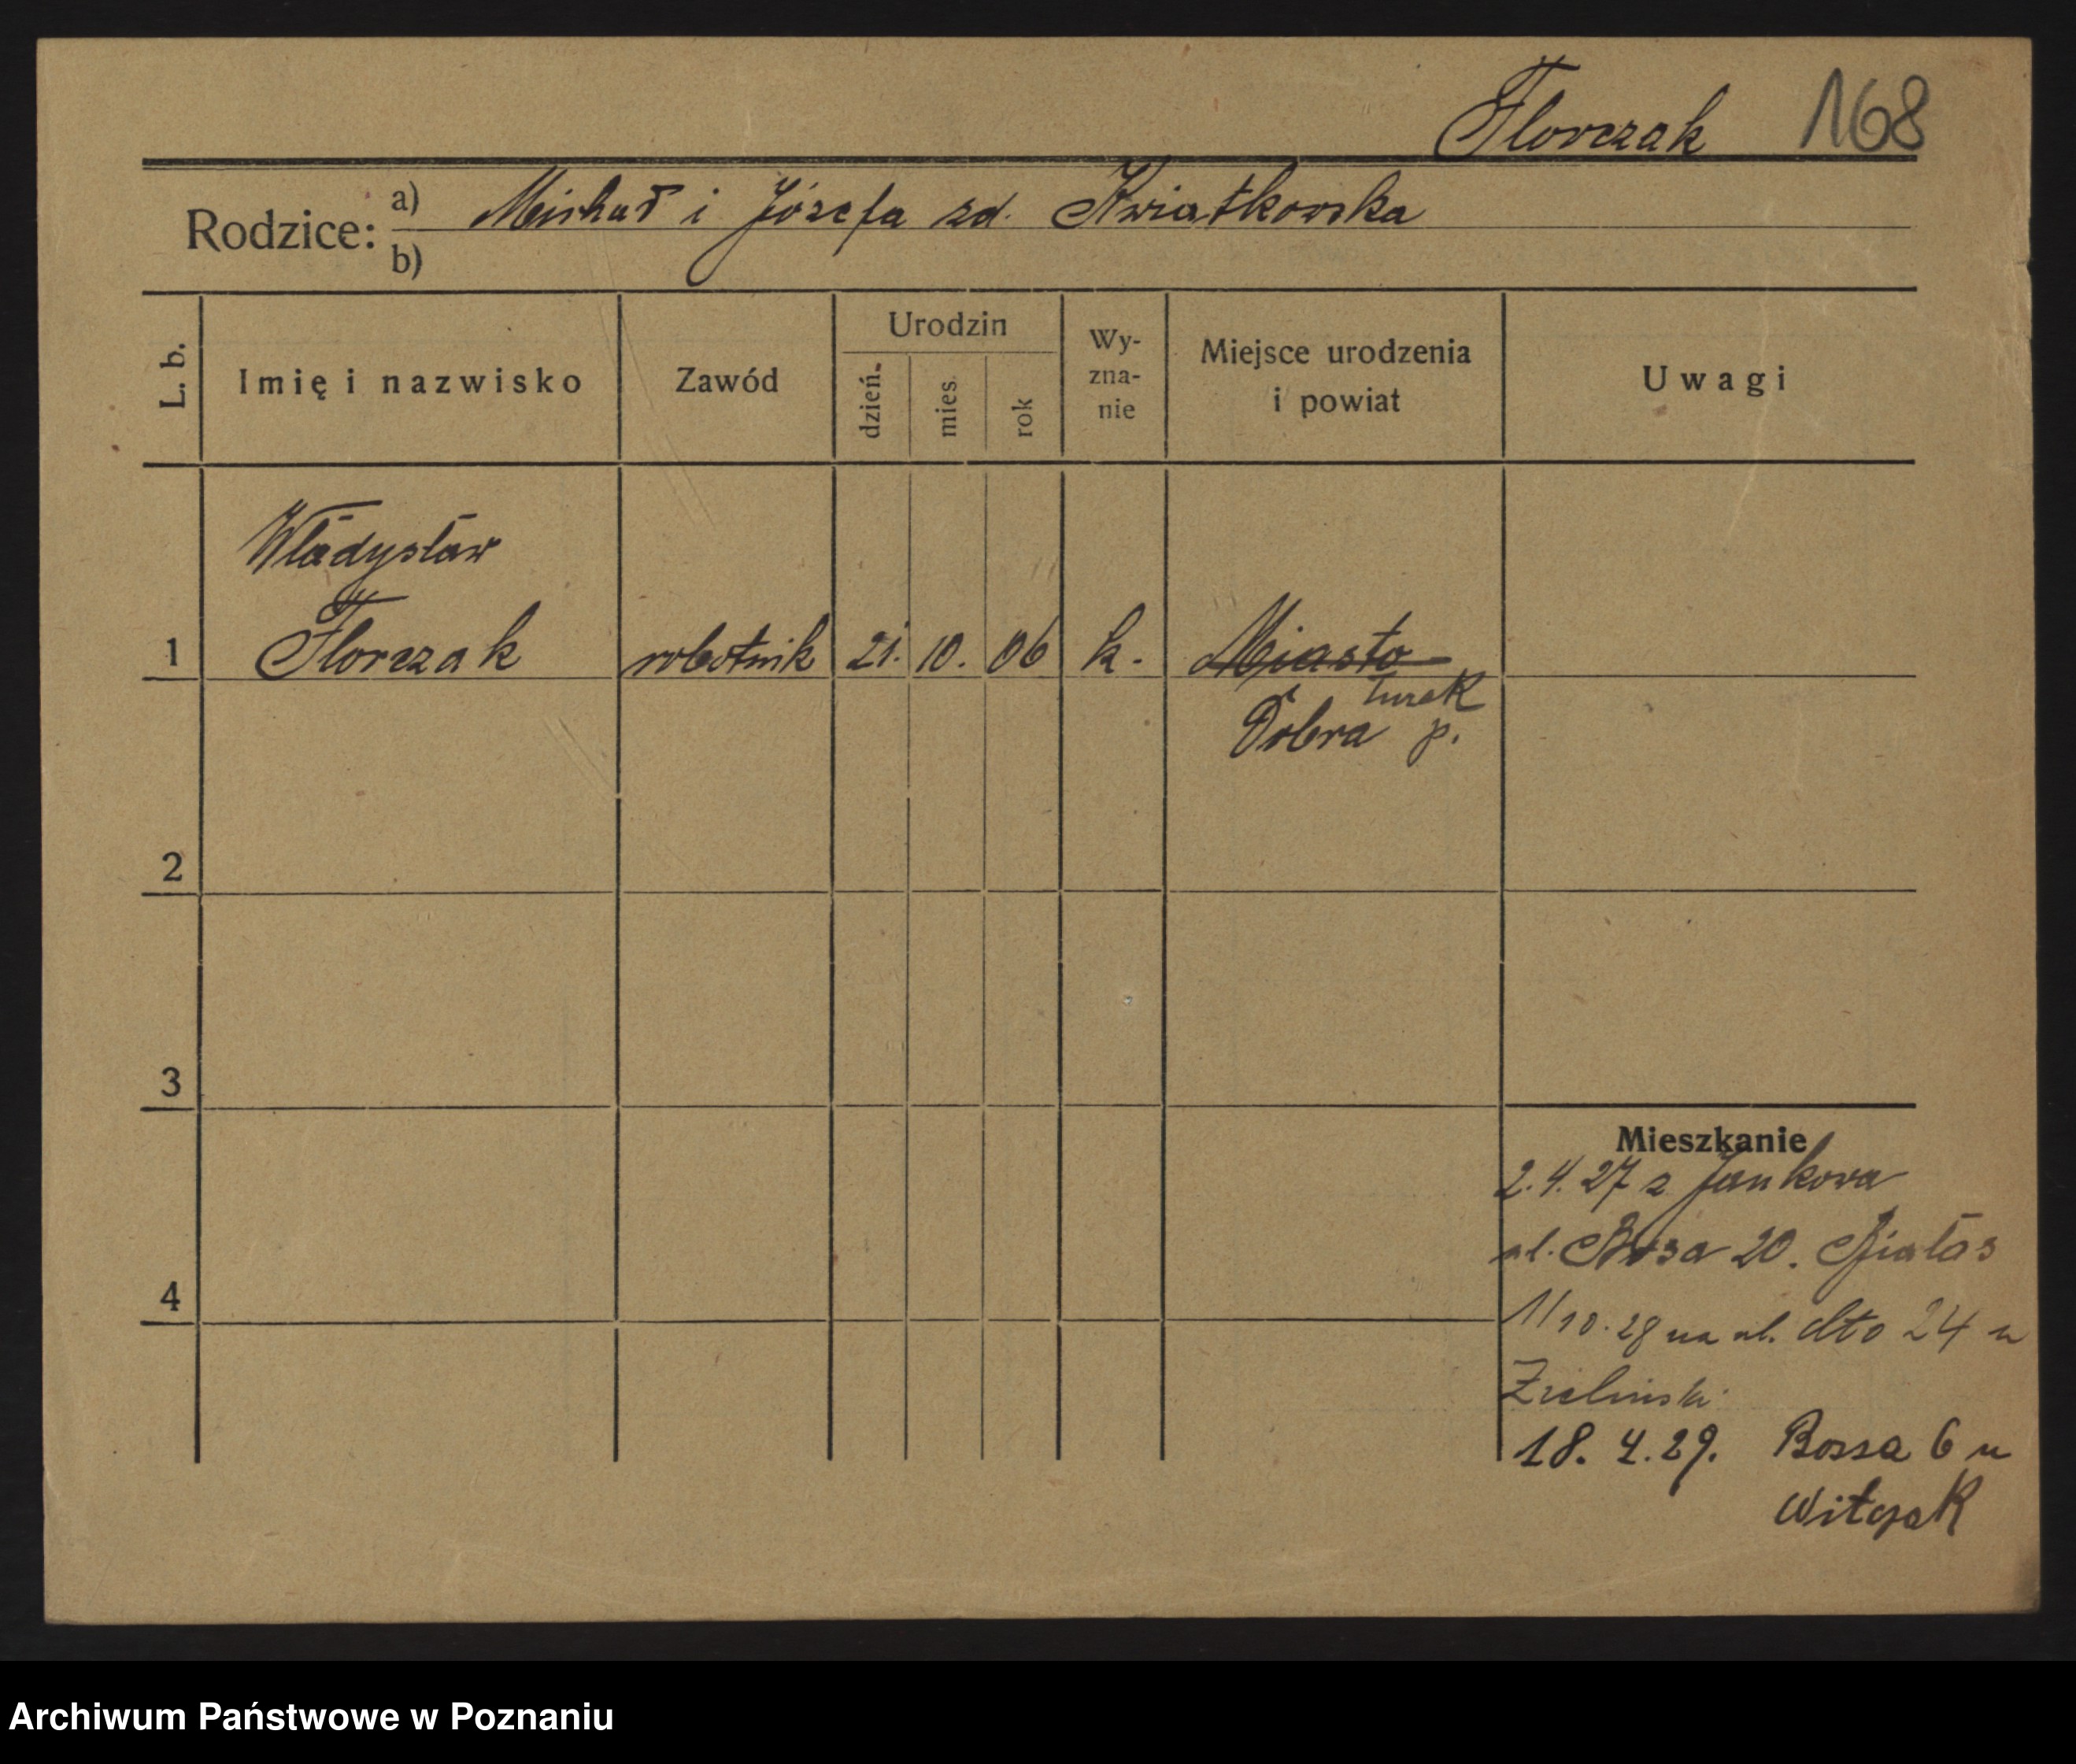 Florczak 168
Rodzice: a) Michał i Józefa zd. Kwiatkowska
b)
L. b.
Imię i nazwisko
Zawód
Urodzin
dzień.
mies.
rok
Wy-
zna-
nie
Miejsce urodzenia
i powiat
Uwagi
Władysław
1 Florczak robotnik 21. 10. 06 k. Miasto
Turek
Dobra p.
2
3
4
Mieszkanie
2.4.27 z Jankowa
ul. Bosa 20. Białas
1/10.28 na ul. dto 24 u
Zieliński
18. 4. 29. Bossa 6 u
Witczak
Archiwum Państwowe w Poznaniu